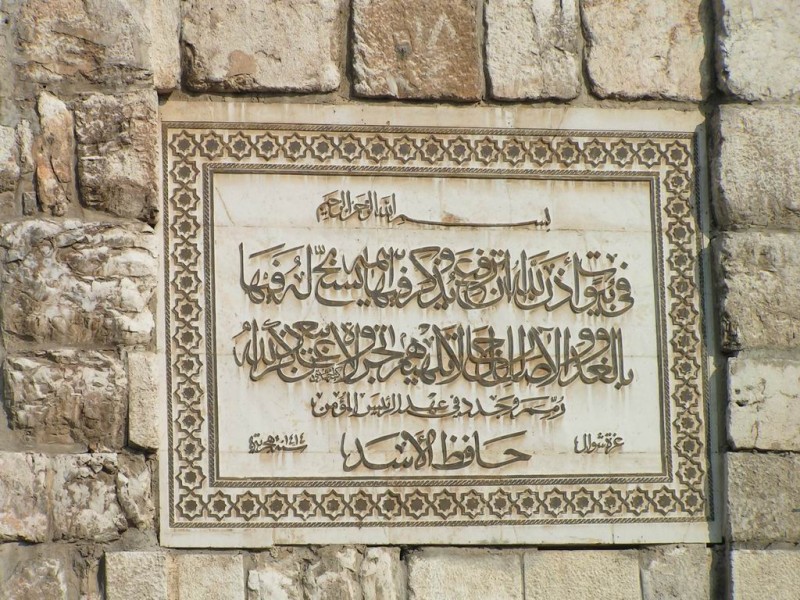 بسم الله الرحمن الرحيم
في بيوت أذن الله أن ترفع ويذكر فيها اسمه يسبح له فيها
بالغدو والآصال رجال لا تلهيهم تجارة ولا بيع عن ذكر الله
رمم وجدد في عهد الرئيس المؤمن
غرة شوال حافظ الاسد سنة ١٤١٤ هجرية